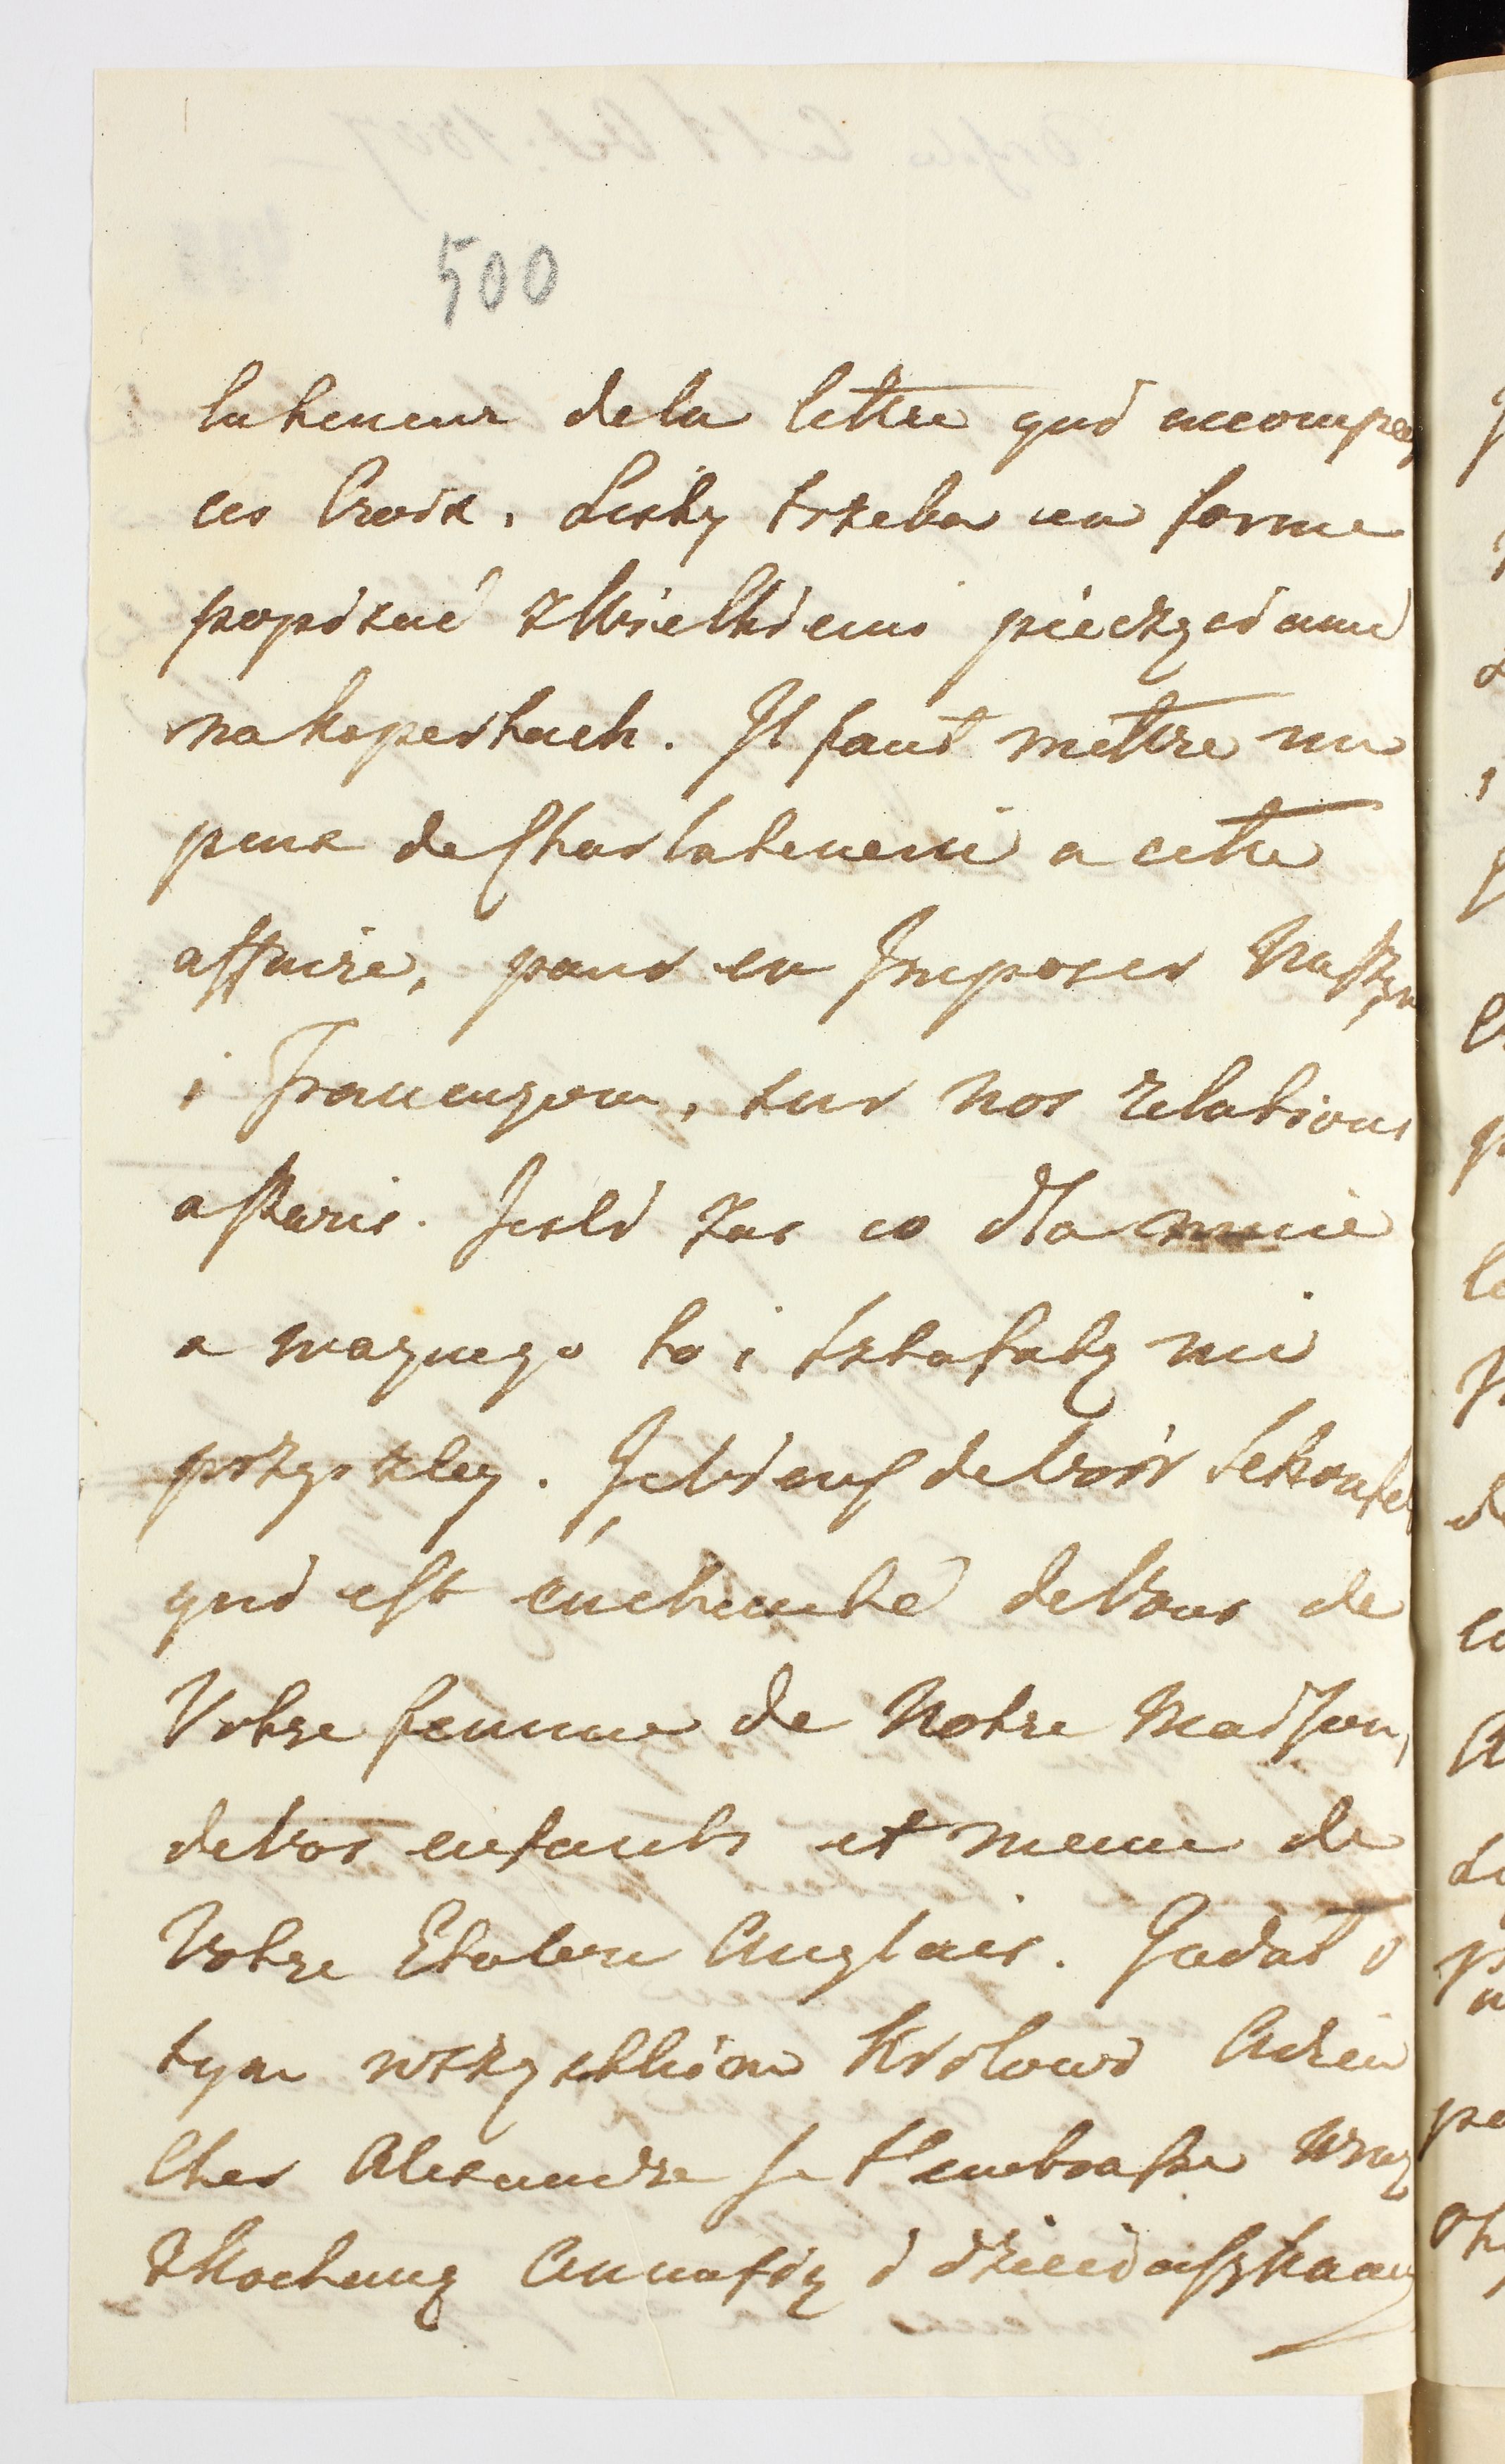 500
lateneur dela lettre qui accompag
ces Croix. Listy trzeba en forme
popisać zWielkiemi pieczęciami
nakopertach. Il faut mettre un
peux de Charlatenerie a cette
affaire, pour en Imposer Naszym
i Francuzom, sur nos relations
a Paris. Jesli zas co dla mnie
a waznego to i sztafatę mi
przyszley. Je viens de Voir
qui est enchanté de Vous de
Votre femme de Notre Maison,
de Vos enfants et meme de
Votre Etalon Anglais. Gadat o
tym wszystkiem Krolowi Adieu
Cher Alexandre je t'embrasse wraz
zKochaną Annasią i dzieciaszkami